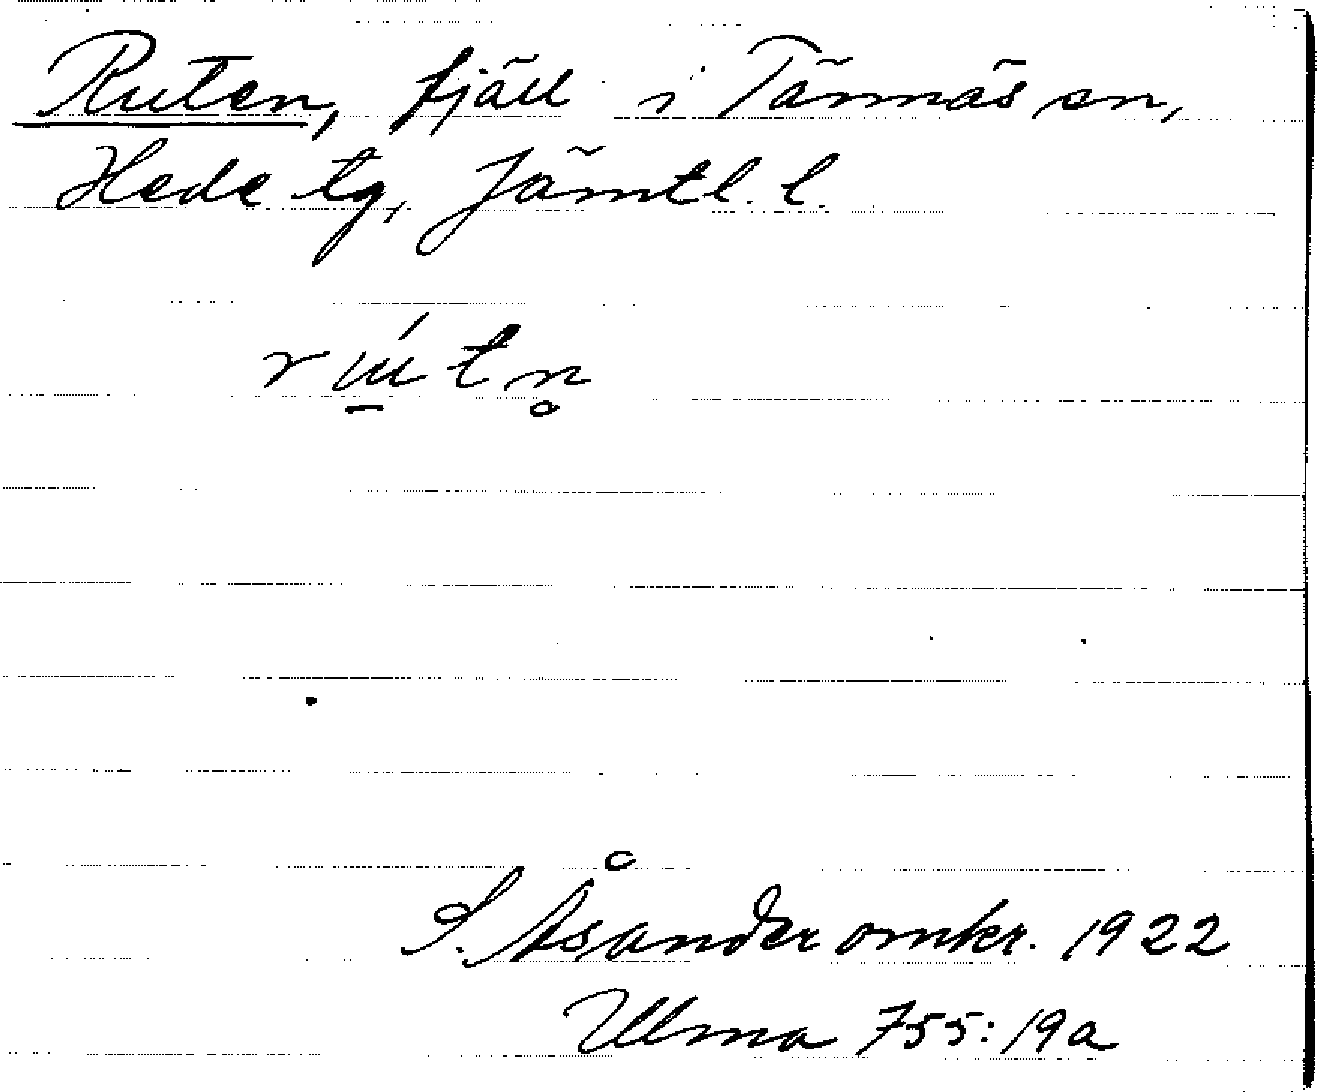 Ruten, fjäll i Tännäs sn,
Hede tg, Jämtl. l.
r ú̱ t n̥
S. Åsander omkr. 1922
Ulma 755:19a